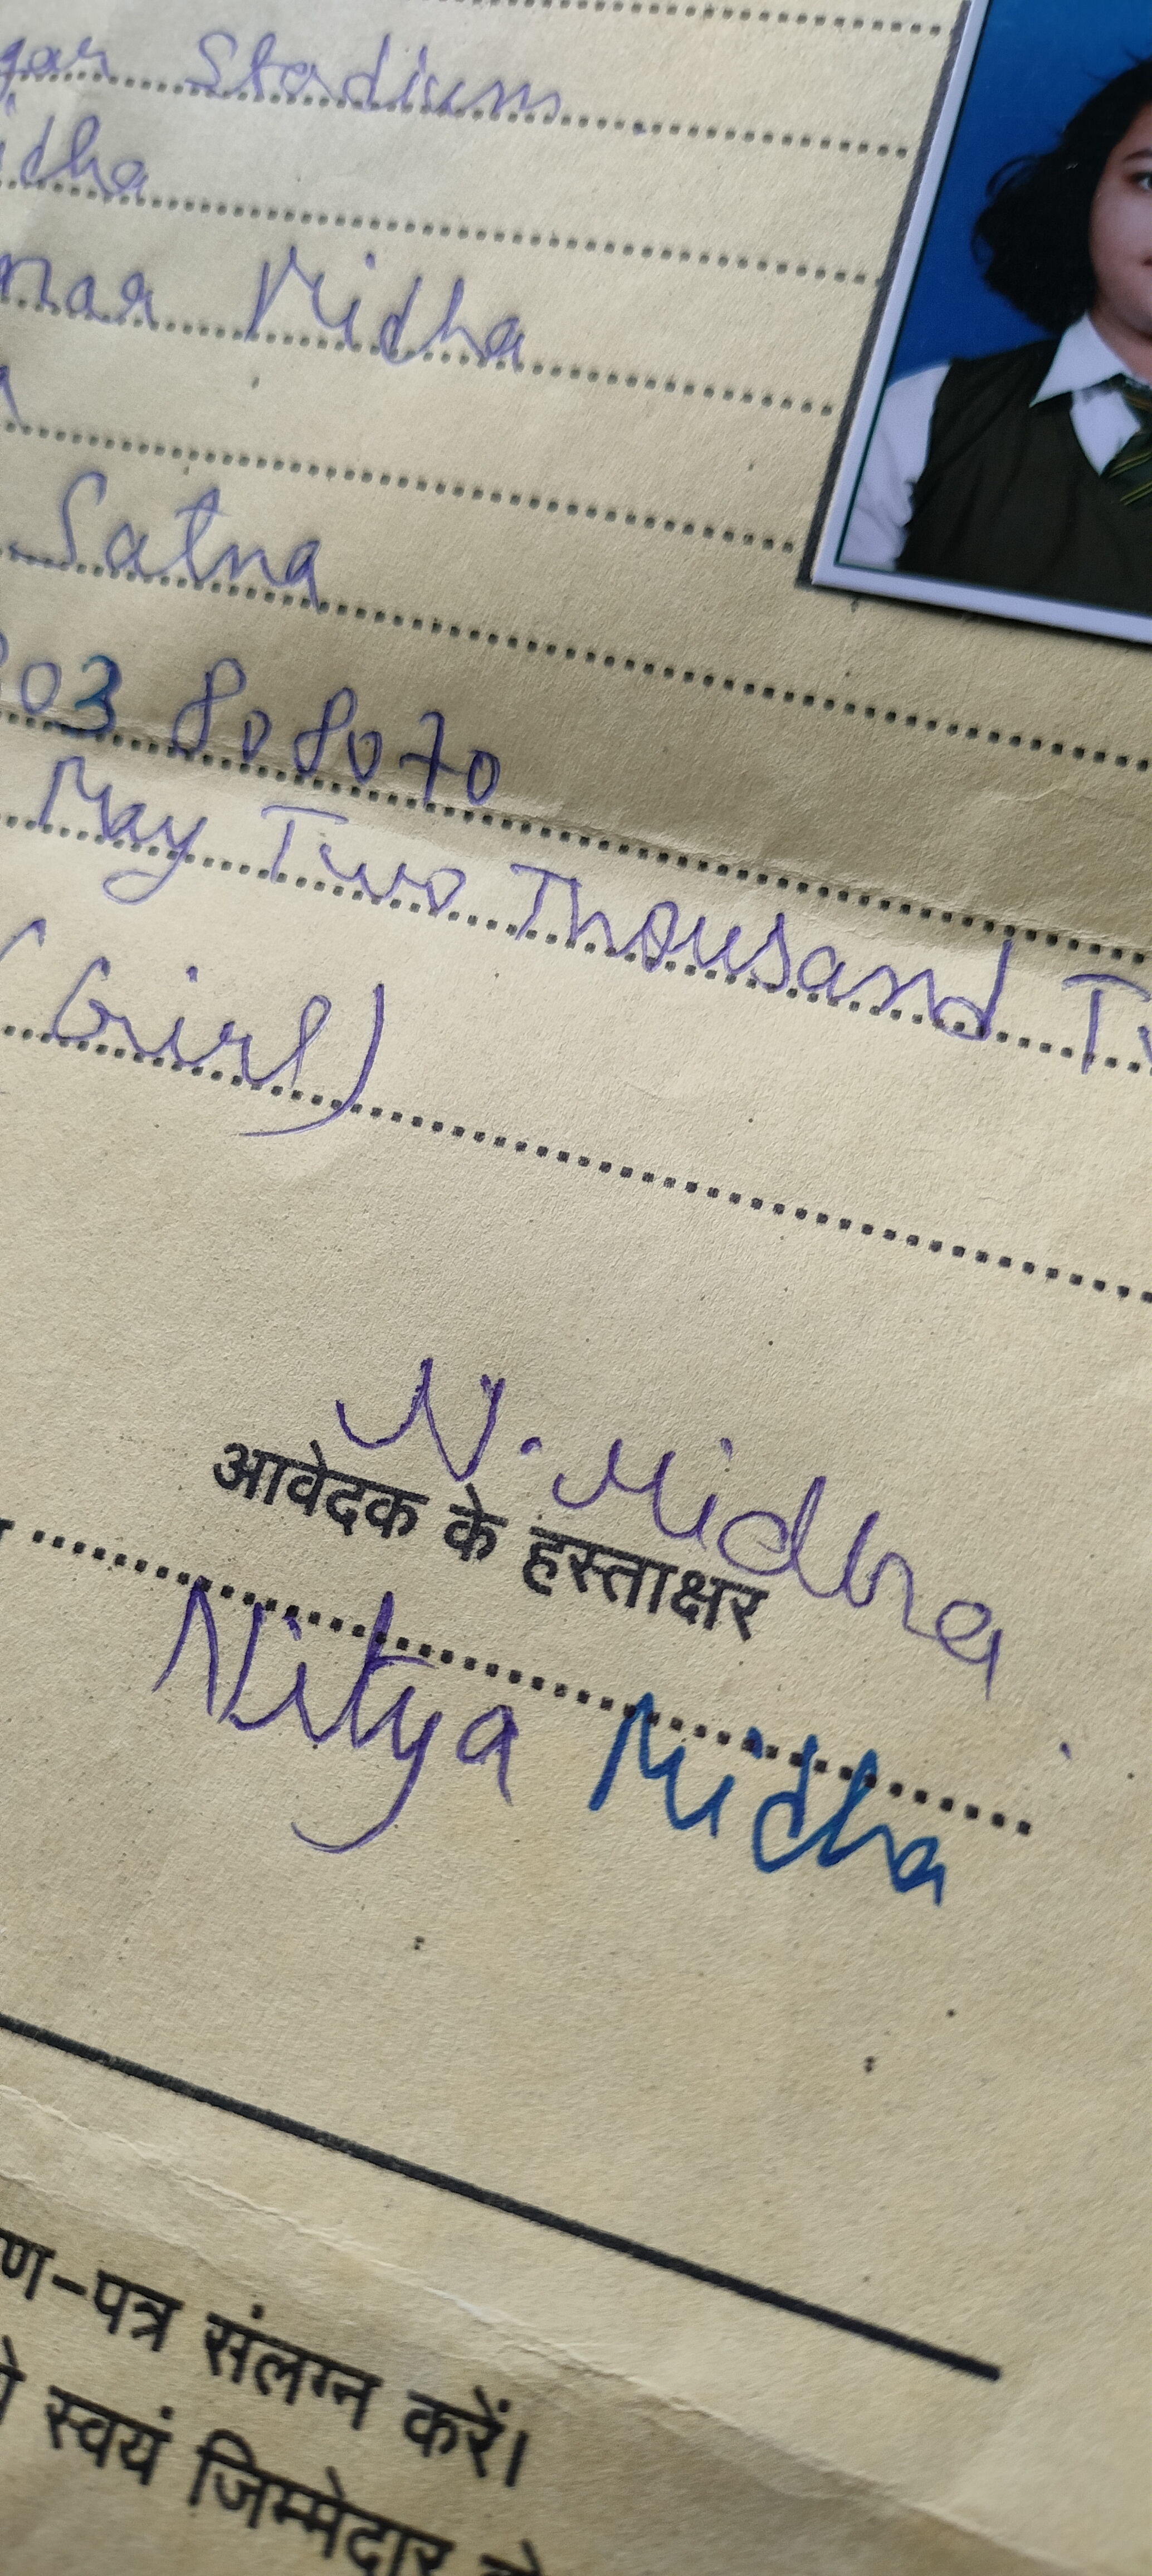 gar Stadium
idha
mar Midha
a
Satna
303 808070
May Two Thousand Tw
(Girl)
N. Midha
आवेदक के हस्ताक्षर
Nitya Midha
ण-पत्र संलग्न करें।
स्वयं जिम्मेदार